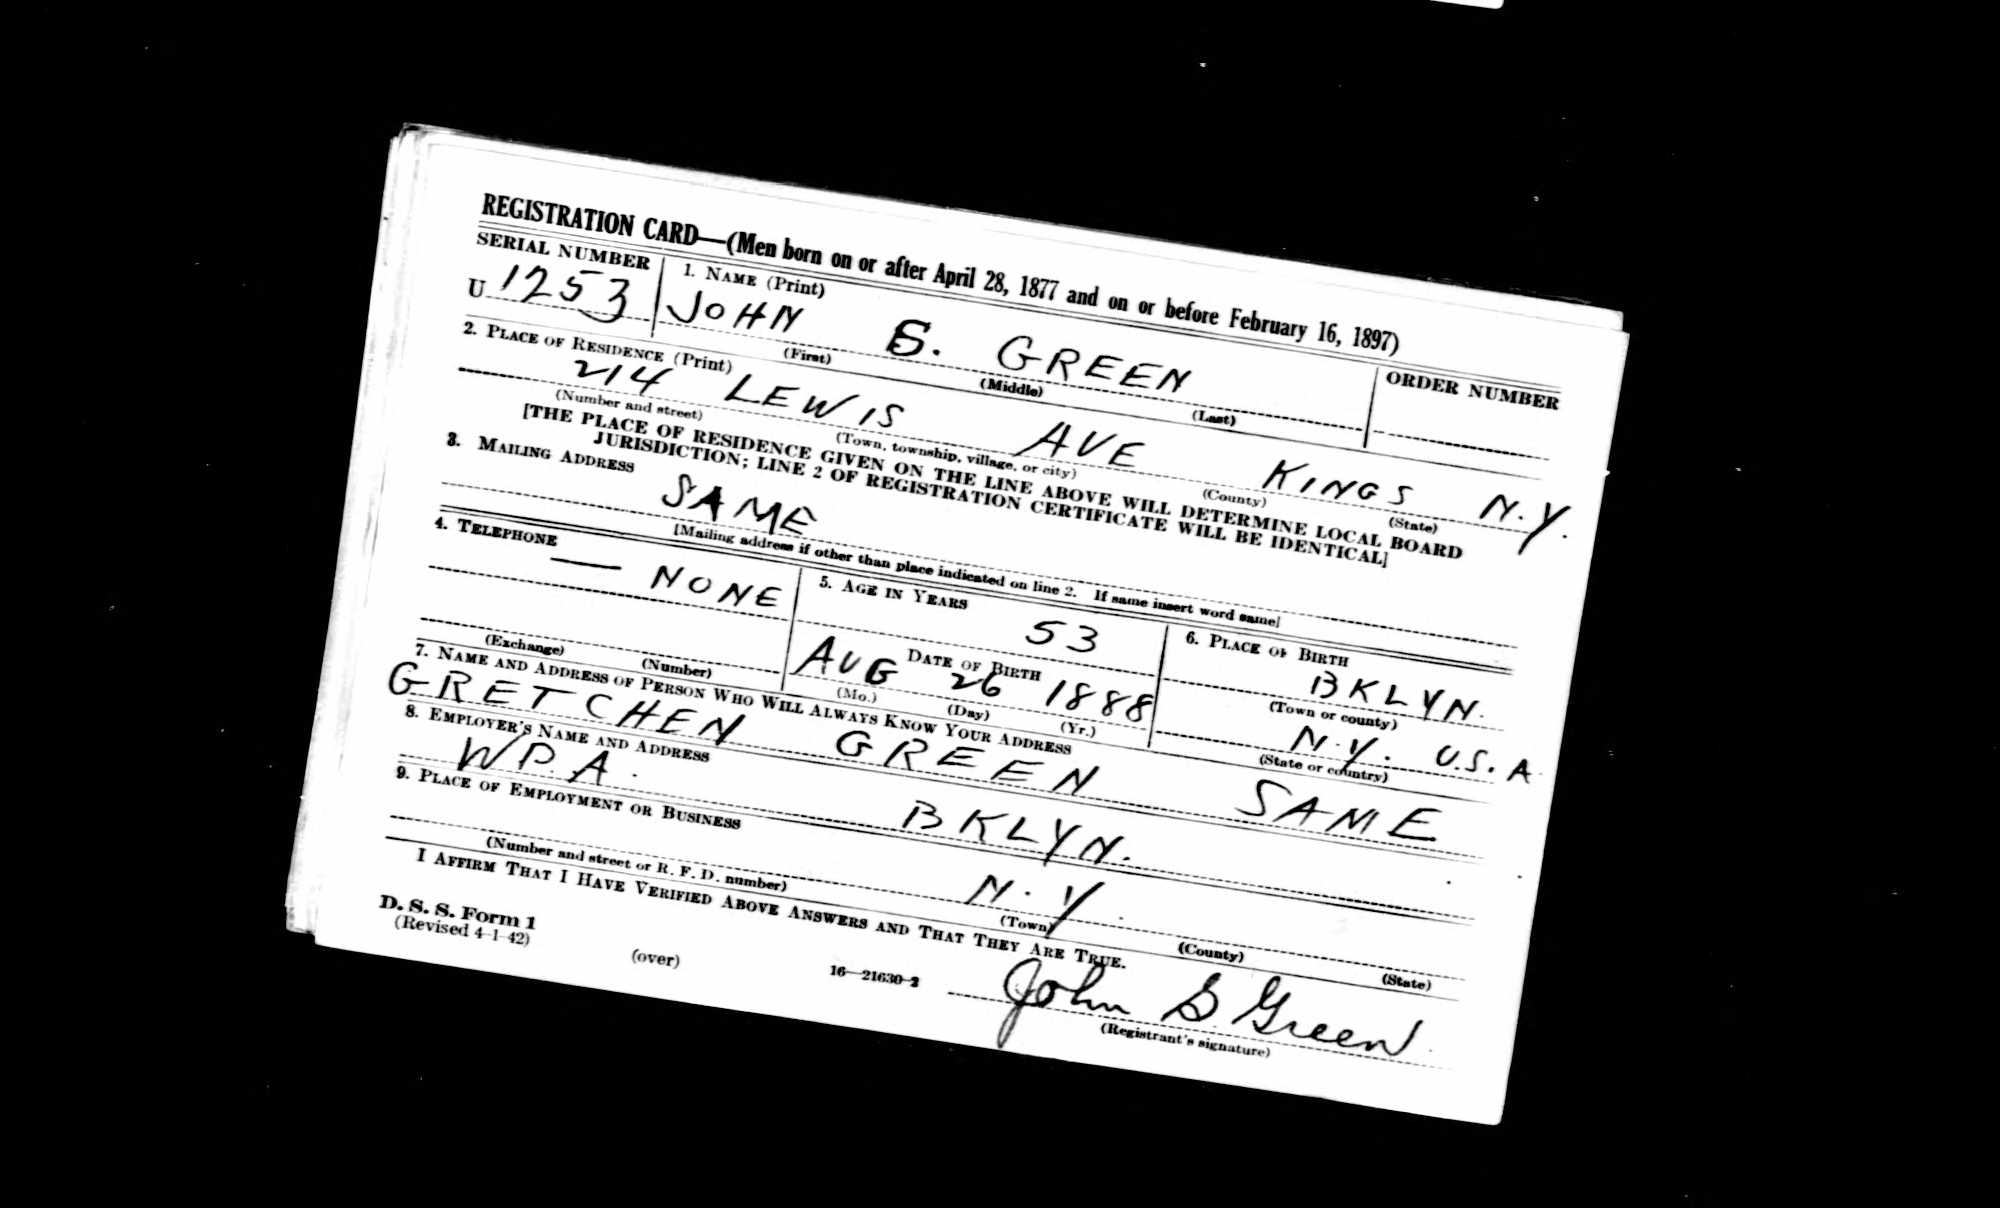 REGISTRATION CARD—(Men born on or after April 28, 1877 and on or before February 16, 1897)
SERIAL NUMBER
1. NAME (Print)
ORDER NUMBER
U 1253
JOHN S. GREEN
(First) (Middle) (Last)
2. PLACE OF RESIDENCE (Print)
214 LEWIS AVE KINGS N.Y.
(Number and street) (Town, township, village, or city) (County) (State)
[THE PLACE OF RESIDENCE GIVEN ON THE LINE ABOVE WILL DETERMINE LOCAL BOARD
JURISDICTION; LINE 2 OF REGISTRATION CERTIFICATE WILL BE IDENTICAL]
3. MAILING ADDRESS
SAME
[Mailing address if other than place indicated on line 2. If same insert word same]
4. TELEPHONE
— NONE
(Exchange) (Number)
5. AGE IN YEARS
53
DATE OF BIRTH
AUG 26 1888
(Mo.) (Day) (Yr.)
6. PLACE OF BIRTH
BKLYN.
(Town or county)
N.Y. U.S.A.
(State or country)
7. NAME AND ADDRESS OF PERSON WHO WILL ALWAYS KNOW YOUR ADDRESS
GRETCHEN GREEN SAME
8. EMPLOYER'S NAME AND ADDRESS
W.P.A. BKLYN.
9. PLACE OF EMPLOYMENT OR BUSINESS
N.Y.
(Number and street or R. F. D. number) (Town) (County) (State)
I AFFIRM THAT I HAVE VERIFIED ABOVE ANSWERS AND THAT THEY ARE TRUE.
D. S. S. Form 1
(Revised 4-1-42)
(over)
16—21630-2
John S. Green
(Registrant's signature)